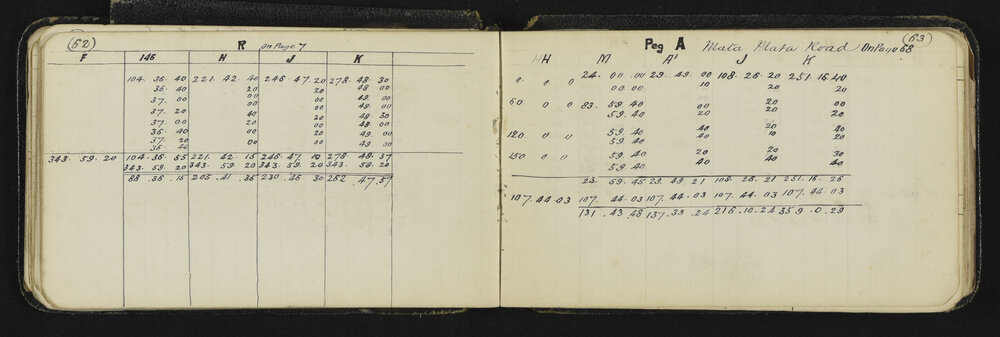 (62)
R on Page 7
F 146 H J K
104. 36. 40 221. 42. 40 246. 47. 20 278. 48. 30
36. 40 20 20 48 00
37. 00 00 00 48. 00
37. 20 40 20 48. 30
37. 00 20 00 48. 00
36. 40 00 20 49. 00
37. 20 00 20 49. 00
36. 40
343. 59. 20 104. 36. 55 221. 42. 15 246. 47. 10 278. 48. 37
343. 59. 20 343. 59. 20 343. 59. 20 343. 59. 20
88. 36. 15 205. 41. 35 230. 46. 30 262. 47. 57
(63)
Peg A Mata Mata Road On Page 68
HH M A' J K
0. 0 0 24. 00 00 29. 49. 00 108. 26. 20 251. 16. 40
00. 00 10 20 20
60 0 0 83. 59. 40 00 20 00
59. 40 20 20 20
120 0 0 59. 40 40 20 40
59. 40 20 10 20
150 0 0 59. 40 20 20 30
59. 40 40 40 40
23. 59. 45 29. 49. 21 108. 26. 21 251. 16. 26
107. 44. 03 107. 44. 03 107. 44. 03 107. 44. 03 107. 44. 03
131. 43. 48 137. 33. 24 216. 10. 24 359. 0. 29